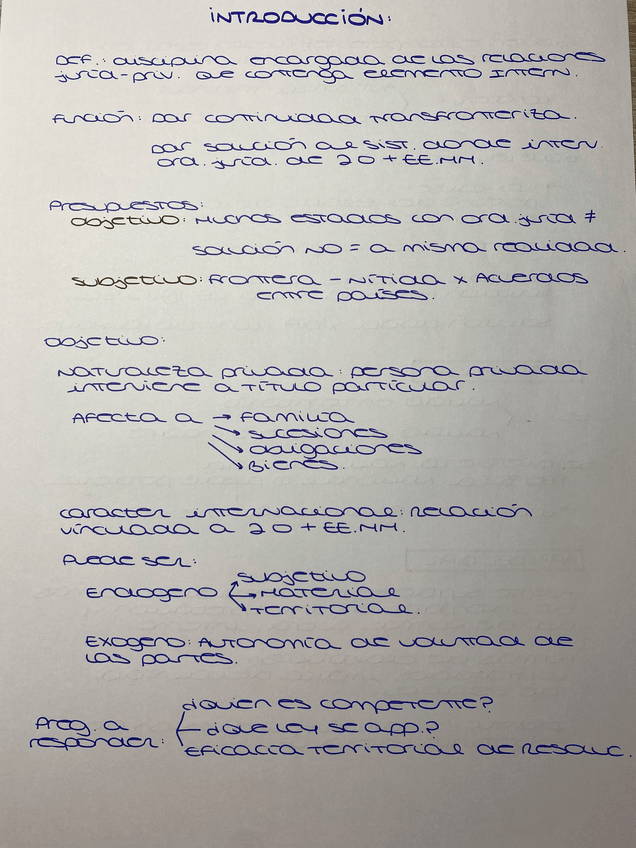 INTRODUCCIÓN:
DEF.: disciplina encargada de las relaciones
jurid-priv. que contenga elemento intern.
Función: dar continuidad transfronteriza.
dar solución al sist. donde interv.
ord. jurid. de 2 o + EE.MM.
Presupuestos:
objetivo: Muchos estados con ord. jurid ≠
solución NO = a misma realidad.
subjetivo: frontera - Nítida x Acuerdos
entre países.
Objetivo:
Naturaleza privada: persona privada
interviene a título particular.
Afecta a → familia
→ sucesiones
→ obligaciones
→ Bienes.
caracter internacional: relación
vinculada a 2 o + EE.MM.
Puede ser:
subjetivo
Endogeno → Material
territorial.
Exogeno: Autonomía de voluntad de
las partes.
¿Quien es competente?
Preg. a
¿Que ley se app.?
responder:
Eficacia territorial de resoluc.